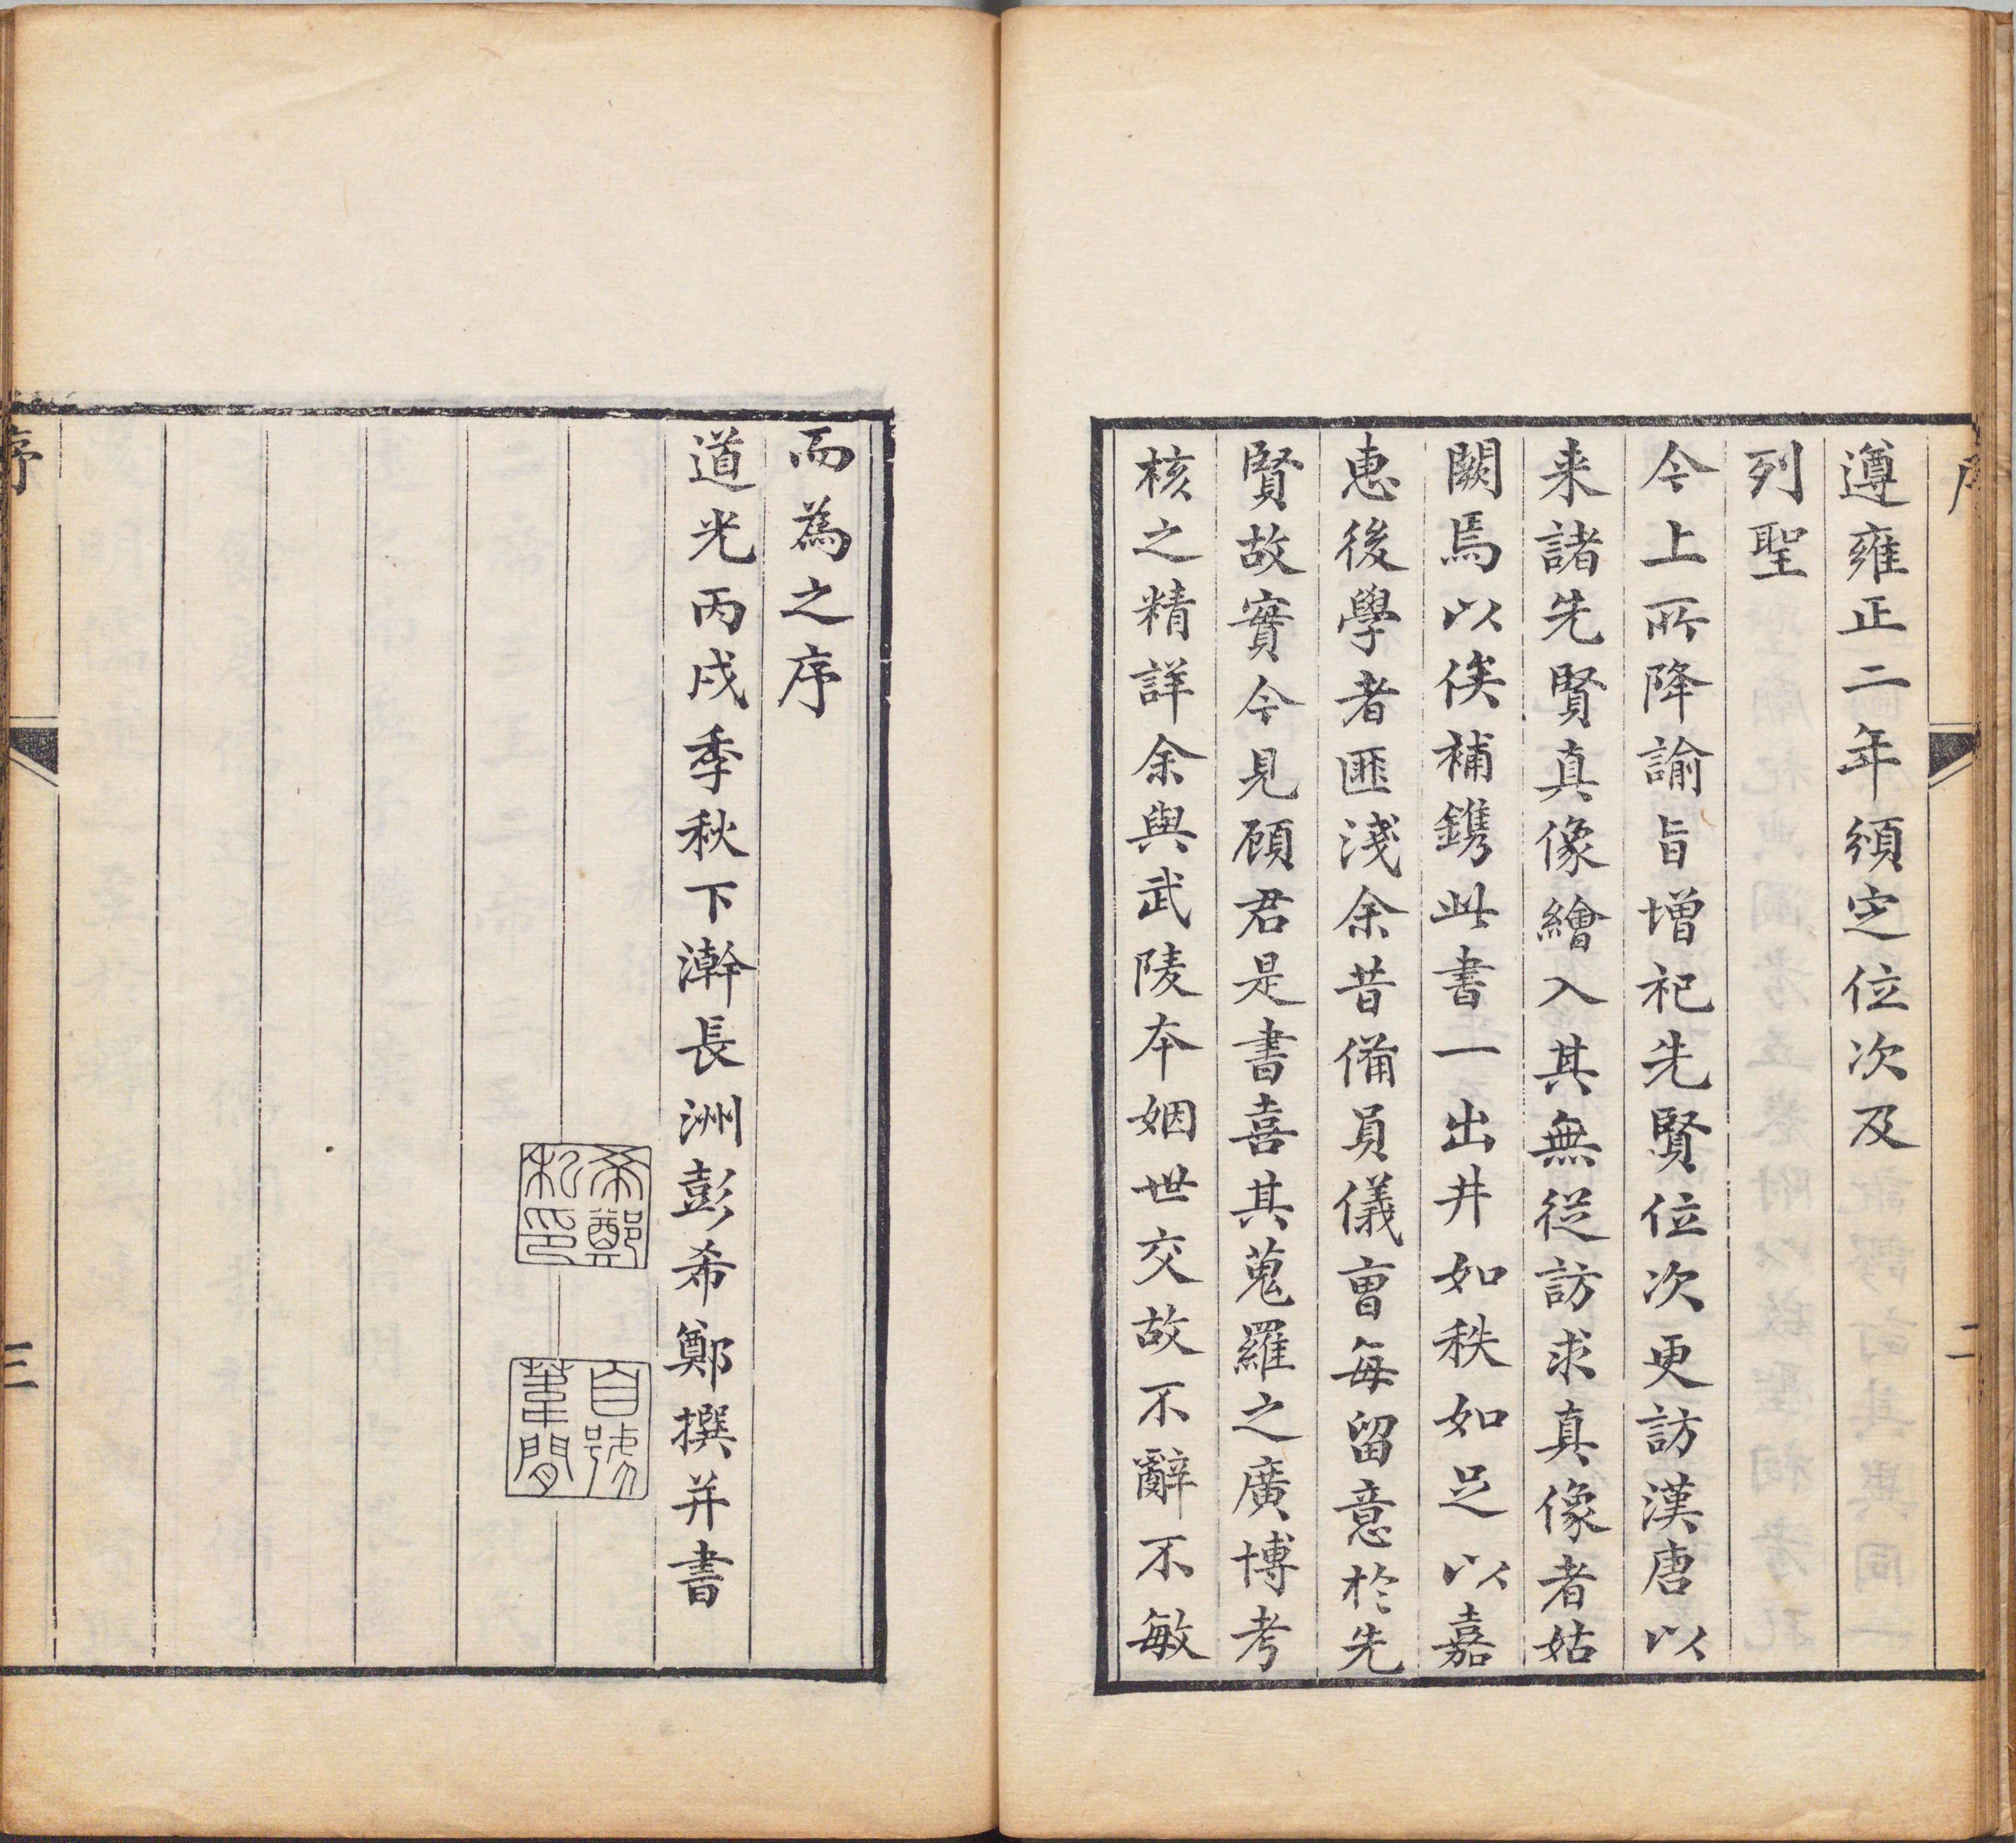 遵雍正二年頒定位次及
列聖
今上所降諭旨增祀先賢位次更訪漢唐以
来諸先賢真像繪入其無從訪求真像者姑
闕焉以俟補鐫此書一出井如秩如足以嘉
惠後學者匪淺余昔備員儀曹每留意於先
賢故實今見顧君是書喜其蒐羅之廣博考
核之精詳余與武陵本姻世交故不辭不敏
二
而為之序
道光丙戌季秋下澣長洲彭希鄭撰并書
希鄭私印
自號葦間
序
三